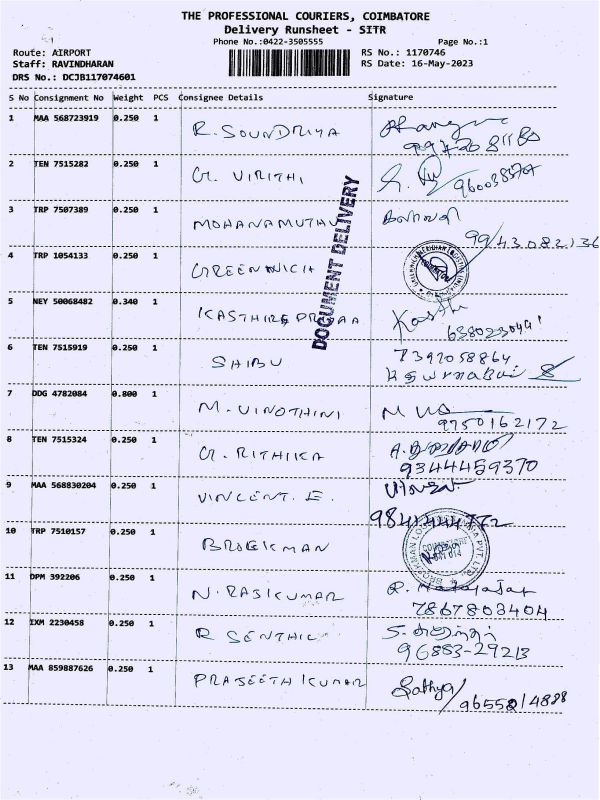 THE PROFESSIONAL COURIERS, COIMBATORE
Delivery Runsheet - SITR
Phone No.:0422-3505555 Page No.:1
Route: AIRPORT RS No.: 1170746
Staff: RAVINDHARAN RS Date: 16-May-2023
DRS No.: DCJB117074601
S No Consignment No Weight PCS Consignee Details Signature
1 MAA 568723919 0.250 1 R. SOUNDRIYA
2 TEN 7515282 0.250 1 G. VIRITHI
3 TRP 7507389 0.250 1 MOHANAMUTHU
99/43082136
4 TRP 1054133 0.250 1 GREENWICH
5 NEY 50068482 0.340 1 Kasthi
6380230491
6 TEN 7515919 0.250 1 SHIBU 7397058864
7 DDG 4782084 0.800 1 M. VINOTHINI
9750162172
8 TEN 7515324 0.250 1 G. RITHIKA
9344459370
9 MAA 568830204 0.250 1 VINCENT. E.
10 TRP 7510157 0.250 1 BROEKMAN
11 DPM 392206 0.250 1 N. RAJKUMAR
7867803404
12 IXM 2230458 0.250 1 R SENTHIL
96883-29213
13 MAA 859887626 0.250 1 PRAJEETH KUMAR Sathya/
DOCUMENT DELIVERY